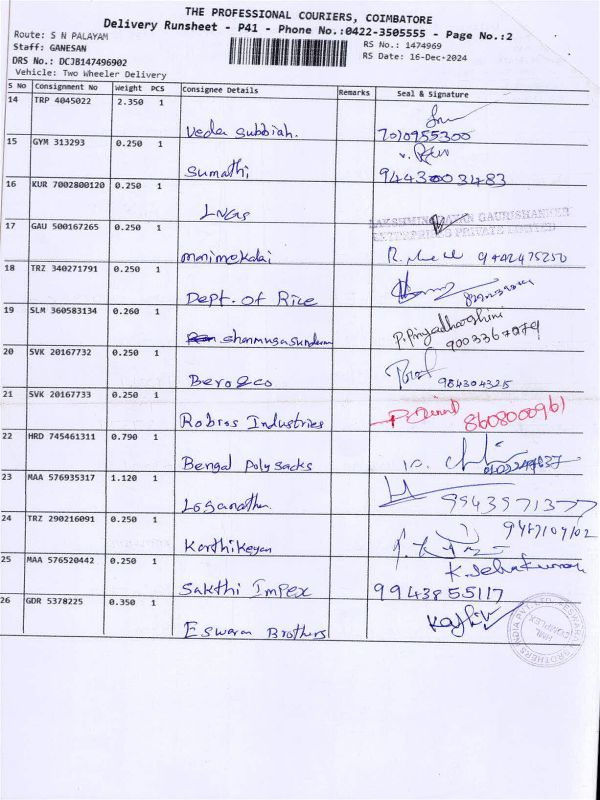 THE PROFESSIONAL COURIERS, COIMBATORE
Delivery Runsheet - P41 - Phone No.:0422-3505555 - Page No.:2
Route: S N PALAYAM
Staff: GANESAN
RS No.: 1474969
DRS No.: DCJB147496902
RS Date: 16-Dec-2024
Vehicle: Two Wheeler Delivery
S No Consignment No Weight PCS Consignee Details Remarks Seal & Signature
14 TRP 4045022 2.350 1
Veda Subbiah. 7010955300
15 GYM 313293 0.250 1
Sumathi 9443003483
16 KUR 7002800120 0.250 1
LNGS
LAKSHMINARAYAN GAURISHANKER
ENTERPRISES PRIVATE LIMITED
17 GAU 500167265 0.250 1
manimekalai 9442475250
18 TRZ 340271791 0.250 1
Dept. of Rice
19 SLM 360583134 0.260 1
shanmugasundaram P. Priyadharshini
9003367079
20 SVK 20167732 0.250 1
Bero & co 984304325
21 SVK 20167733 0.250 1
Robros Industries 8608000961
22 HRD 745461311 0.790 1
Bengal Poly sacks
23 MAA 576935317 1.120 1
Loganathan 9943971377
24 TRZ 290216091 0.250 1
Karthikeyan
25 MAA 576520442 0.250 1
K. Jebakumar
Sakthi Impex 9943855117
26 GDR 5378225 0.350 1
Eswaran Brothers
ESWARAN BROTHERS INDIA PVT LTD
HNM COMPLEX